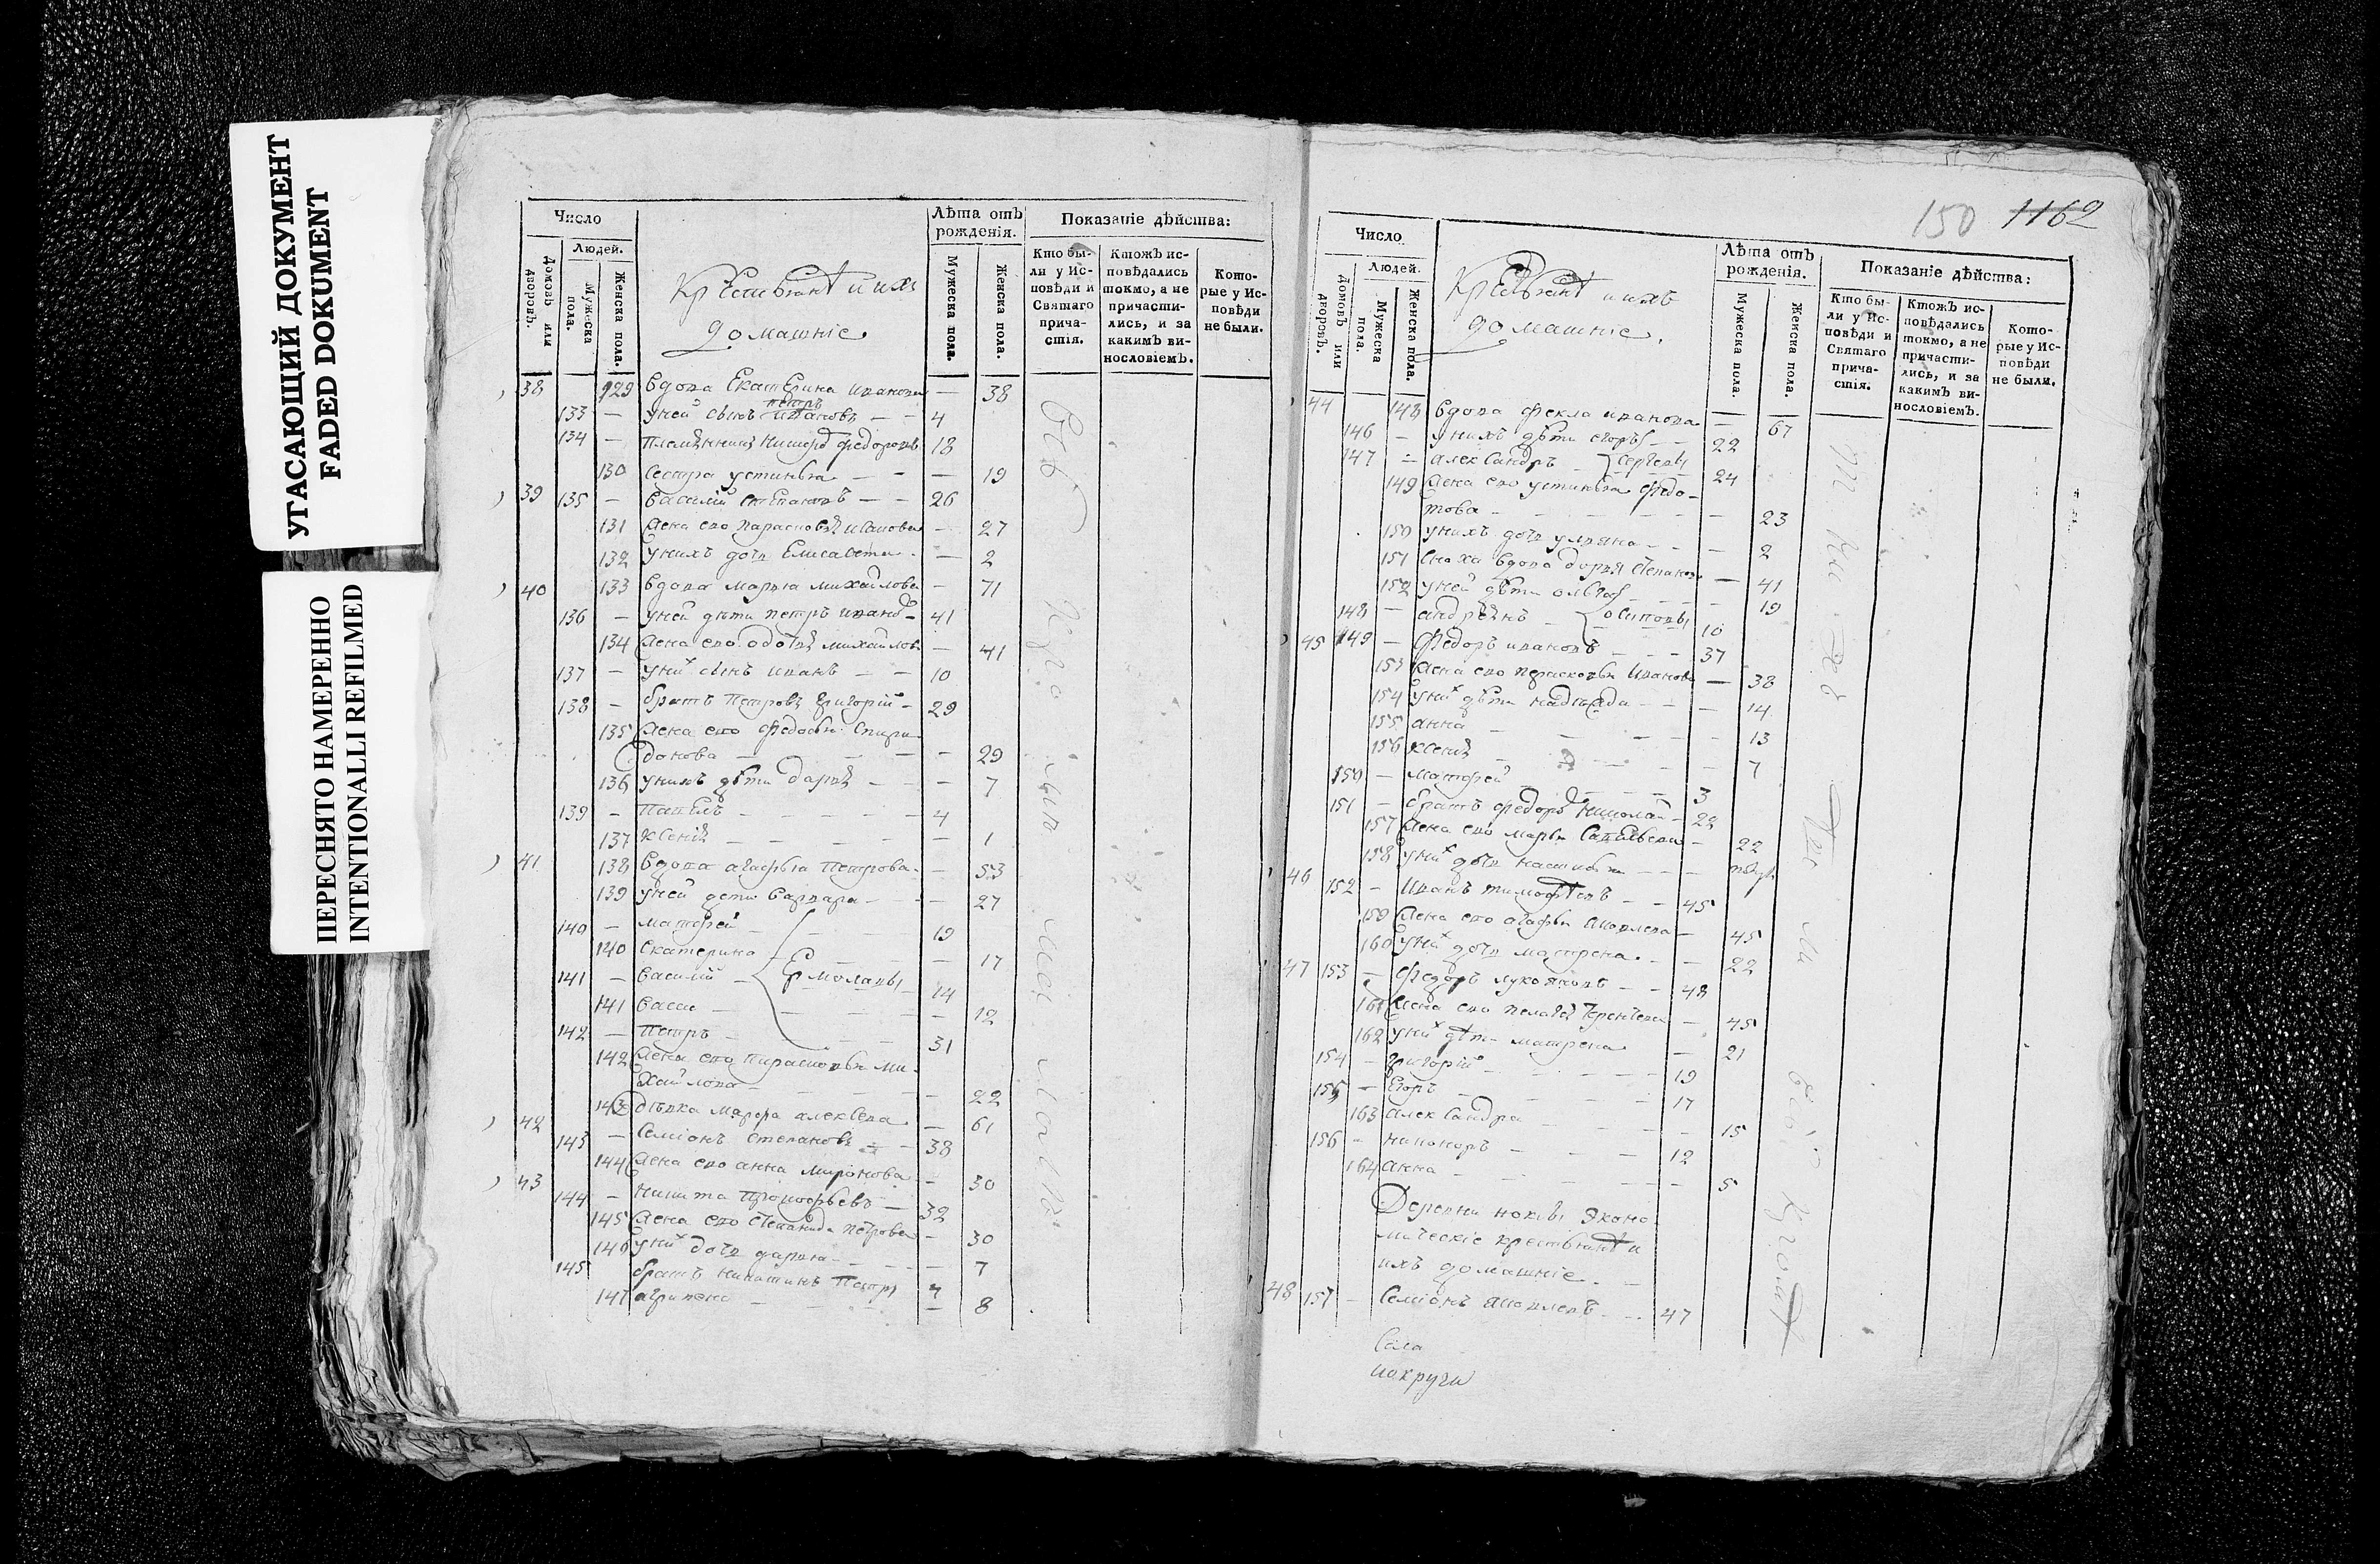 УГАСАЮЩИЙ ДОКУМЕНТ
FADED DOKUMENT
ПЕРЕСНЯТО НАМЕРЕННО
INTENTIONALLI REFILMED
Число
Людей.
Домовъ или дворовъ.
Мужеска пола.
Женска пола.
Крестьянѣ и ихъ
домашніе
Лѣта отъ рожденія.
Мужеска пола.
Женска пола.
Показаніе дѣйства:
Кто были у Исповѣди и Святаго причастія.
Ктожъ исповѣдались токмо, а не причастились, и за какимъ винословіемъ.
Которые у Исповѣди не были.
38 129 вдова Екатерина Иванова — 38
133 — у ней сынъ петръ Ивановъ — — 4
134 — племянникъ Федоровъ 18
130 сестра устинья — — 19
39 135 — василій степановъ — — 26
131 жена его парасковья иванова — 27
132 у нихъ дочь Елисавета — 2
40 133 вдова марья михайлова — 71
136 — у ней дѣти петръ иванов 41
134 жена его авдотья михайлов — 41
137 — у них сынъ иванъ — — 10
138 — братъ петровъ григорій — 29
135 жена его федосья спири
донова — — 29
136 у нихъ дѣти дарья — — 7
139 — павелъ — — — — 4
137 ксенія — — — — 1
41 138 вдова агафья петрова — 53
139 у ней дети варвара — — 27
140 — матфей — — 19
140 екатерина — — 17
141 — василій — Ермолаевы 14
141 васса — — — 12
142 — петръ — — 31
142 жена его парасковья ми
хайлова — — 22
143 дѣвка марфа алексеева — 61
42 143 — семіонъ степановъ — — 38
144 жена его анна миронова — 30
43 144 — никита прокофьевъ — 32
145 жена его степанида петрова — 30
146 у них дочь дарья — — 7
145 братъ никитинъ петръ 7
147 агрипена — — — 8
150 1162
Число
Людей.
Домовъ или дворовъ.
Мужеска пола.
Женска пола.
Крестьянѣ и ихъ
домашніе.
Лѣта отъ рожденія.
Мужеска пола.
Женска пола.
Показаніе дѣйства:
Кто были у Исповѣди и Святаго причастія.
Ктожъ исповѣдались токмо, а не причастились, и за какимъ винословіемъ.
Которые у Исповѣди не были.
44 148 вдова фекла иванова — 67
146 — у нихъ дѣти егоръ — — 22
147 — александръ — сергеевы 24
149 жена его устинья федо
това — — — — 23
150 у нихъ дочь ульяна — — 2
151 сноха вдова дарья степанов — 41
152 у ней дѣти ольга — — 19
148 — андреянъ — осиповы 10
45 149 — федоръ ивановъ — — 37
153 жена его парасковья иванова — 38
154 у них дѣти надежда — — 14
155 анна — — — — 13
156 ксенія — — — — 7
150 — матфей — — — 3
151 — братъ федоръ николай — 22
157 жена его марья савельева — 22
158 у них дочь настасья — —
46 152 — иванъ тимофеевъ — — 45
159 жена его агафья яковлева — 45
160 у них дочь матрена — — 22
47 153 — федоръ лукояновъ — — 48
161 жена его пелагея терентьева — 45
162 у них дѣти матрена — 21
154 — григорій — — — 19
155 — егоръ — — — 17
163 александра — — — 15
156 — никоноръ — — — 12
164 анна — — — — 5
Деревни эконо
мическіе крестьянѣ и
ихъ домашніе.
48 157 — семіонъ яковлевъ — 47
села